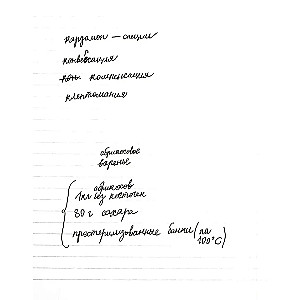 кардамон — специи
конвевсация
компенсация
клептомания
абрикосовое
варенье
абрикосов
1 кг без косточек
80 г сахара
простерилизованные банки (на 100°C)